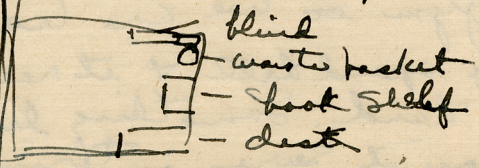 blind
waste basket
book shelf
desk